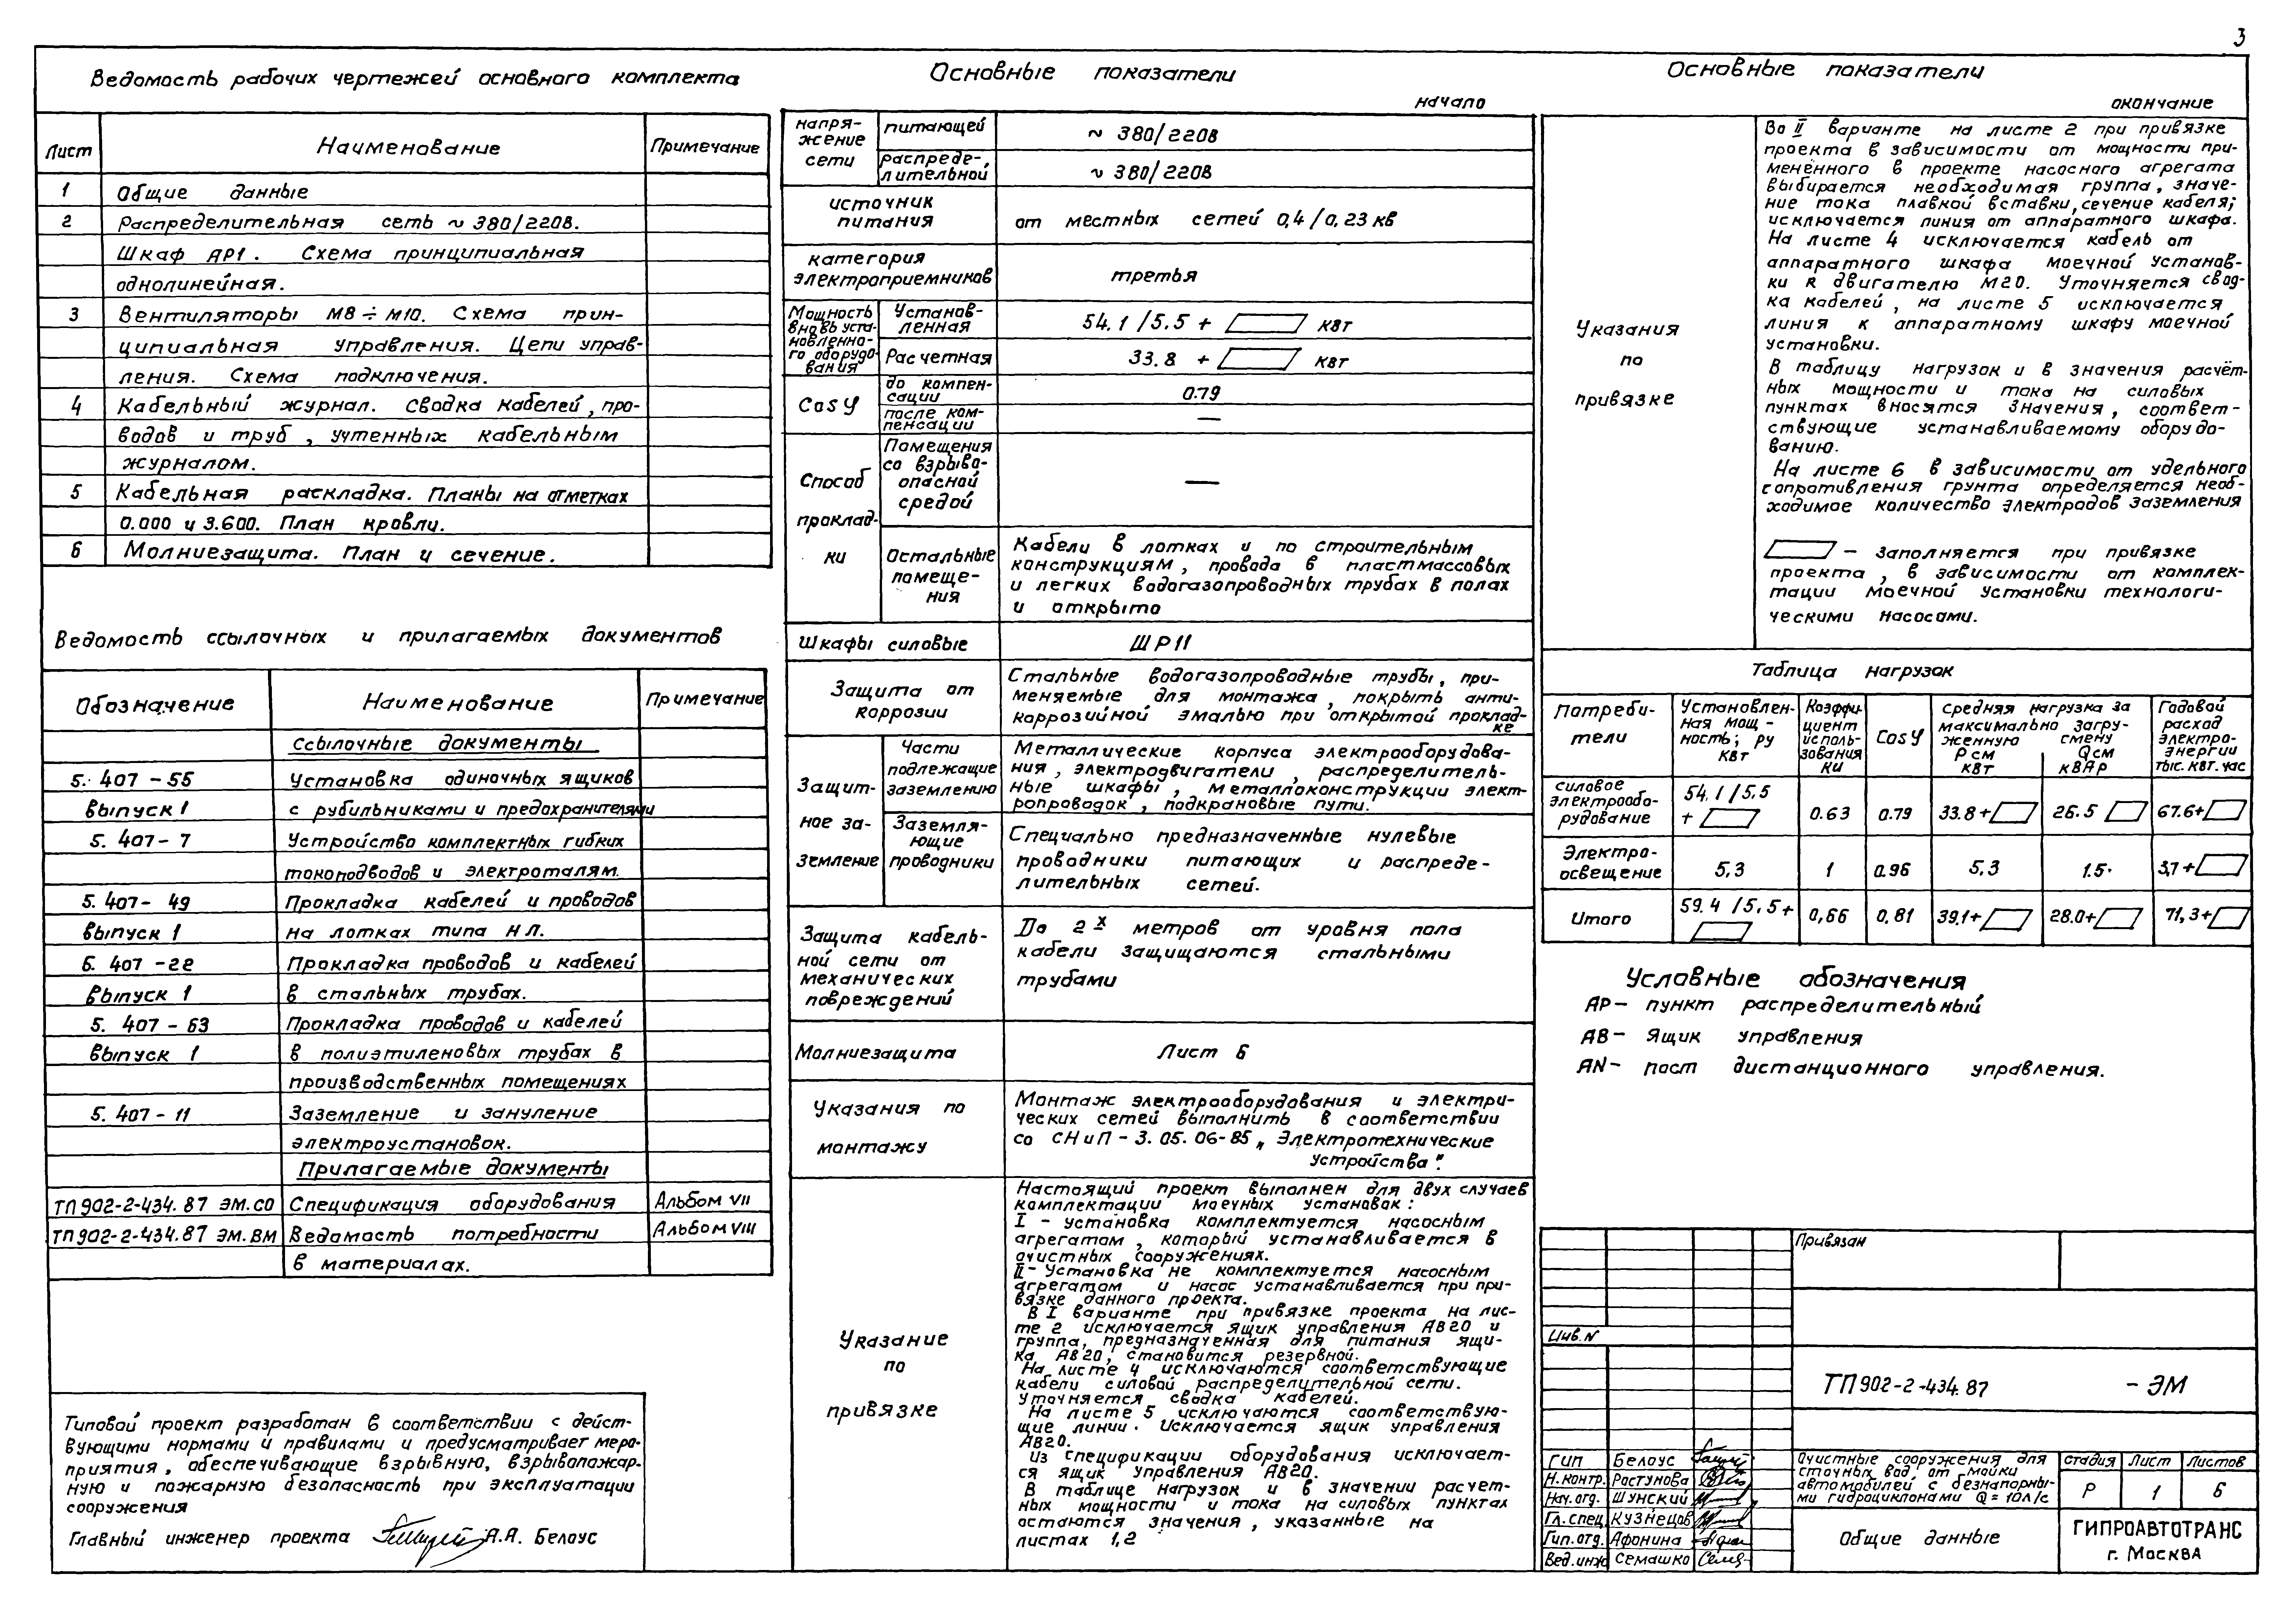 3
Ведомость рабочих чертежей основного комплекта
Лист Наименование Примечание
1 Общие данные
2 Распределительная сеть ~380/220В.
Шкаф АР1. Схема принципиальная
однолинейная.
3 Вентиляторы М8÷М10. Схема прин-
ципиальная управления. Цепи управ-
ления. Схема подключения.
4 Кабельный журнал. Сводка кабелей, про-
водов и труб, учтенных кабельным
журналом.
5 Кабельная раскладка. Планы на отметках
0.000 и 3.600. План кровли.
6 Молниезащита. План и сечение.
Ведомость ссылочных и прилагаемых документов
Обозначение Наименование Примечание
Ссылочные документы
5.407-55 Установка одиночных ящиков
выпуск 1 с рубильниками и предохранителями
5.407-7 Устройство комплектных гибких
токоподводов и электроталям.
5.407-49 Прокладка кабелей и проводов
выпуск 1 на лотках типа НЛ.
5.407-22 Прокладка проводов и кабелей
выпуск 1 в стальных трубах.
5.407-63 Прокладка проводов и кабелей
выпуск 1 в полиэтиленовых трубах в
производственных помещениях
5.407-11 Заземление и зануление
электроустановок.
Прилагаемые документы
ТП902-2-434.87 ЭМ.СО Спецификация оборудования Альбом VII
ТП902-2-434.87 ЭМ.ВМ Ведомость потребности Альбом VIII
в материалах.
Типовой проект разработан в соответствии с дейст-
вующими нормами и правилами и предусматривает меро-
приятия, обеспечивающие взрывную, взрывопожар-
ную и пожарную безопасность при эксплуатации
сооружения
Главный инженер проекта А.А. Белоус
Основные показатели
начало
напря-
жение
сети
питающей ~380/220В
распреде-
лительной ~380/220В
источник
питания
от местных сетей 0,4/0,23 кв
категория
электроприемников
третья
Мощность
вновь уста-
новленно-
го оборудо-
вания
Установ-
ленная
54.1/5.5 + квт
Расчетная 33.8 + квт
Cosφ
до компен-
сации
0.79
после ком-
пенсации
—
Способ
проклад-
ки
Помещения
со взрыво-
опасной
средой
—
Остальные
помеще-
ния
Кабели в лотках и по строительным
конструкциям, провода в пластмассовых
и легких водогазопроводных трубах в полах
и открыто
Шкафы силовые ШР11
Защита от
коррозии
Стальные водогазопроводные трубы, при-
меняемые для монтажа, покрыть анти-
коррозийной эмалью при открытой проклад-
ке
Защит-
ное за-
земление
Части
подлежащие
заземлению
Металлические корпуса электрооборудова-
ния, электродвигатели, распределитель-
ные шкафы, металлоконструкции элект-
ропроводок, подкрановые пути.
Заземля-
ющие
проводники
Специально предназначенные нулевые
проводники питающих и распреде-
лительных сетей.
Защита кабель-
ной сети от
механических
повреждений
До 2х метров от уровня пола
кабели защищаются стальными
трубами
Молниезащита Лист 6
Указания по
монтажу
Монтаж электрооборудования и электри-
ческих сетей выполнить в соответствии
со СНиП-3.05.06-85 „Электротехнические
устройства".
Указание
по
привязке
Настоящий проект выполнен для двух случаев
комплектации моечных установок:
I - установка комплектуется насосным
агрегатом, который устанавливается в
очистных сооружениях.
II - Установка не комплектуется насосным
агрегатом и насос устанавливается при при-
вязке данного проекта.
В I варианте при привязке проекта на лис-
те 2 исключается ящик управления АВ20 и
группа, предназначенная для питания ящи-
ка АВ20, становится резервной.
На листе 4 исключаются соответствующие
кабели силовой распределительной сети.
Уточняется сводка кабелей.
На листе 5 исключаются соответствую-
щие линии. Исключается ящик управления
АВ20.
Из спецификации оборудования исключает-
ся ящик управления АВ20.
В таблице нагрузок и в значении расчет-
ных мощности и тока на силовых пунктах
остаются значения, указанные на
листах 1,2
Основные показатели
окончание
Указания
по
привязке
Во II варианте на листе 2 при привязке
проекта в зависимости от мощности при-
менённого в проекте насосного агрегата
выбирается необходимая группа, значе-
ние тока плавкой вставки, сечение кабеля;
исключается линия от аппаратного шкафа.
На листе 4 исключается кабель от
аппаратного шкафа моечной установ-
ки к двигателю М20. Уточняется свод-
ка кабелей, на листе 5 исключается
линия к аппаратному шкафу моечной
установки.
В таблицу нагрузок и в значения расчёт-
ных мощности и тока на силовых
пунктах вносятся значения, соответ-
ствующие устанавливаемому оборудо-
ванию.
На листе 6 в зависимости от удельного
сопротивления грунта определяется необ-
ходимое количество электродов заземления
— заполняется при привязке
проекта, в зависимости от комплек-
тации моечной установки технологи-
ческими насосами.
Таблица нагрузок
Потреби-
тели
Установлен-
ная мощ-
ность; ру
квт
Коэффи-
циент
исполь-
зования
Ки
Cosφ
Средняя нагрузка за
максимально загру-
женную смену
Рсм
квт
Qсм
кВАр
Годовой
расход
электро-
энергии
тыс. квт. час
силовое
электрообо-
рудование
54.1/5,5
+
0.63 0.79 33.8+ 26.5 67.6+
Электро-
освещение
5,3 1 0.96 5,3 1.5 3,7+
Итого 59.4/5,5+ 0,66 0,81 39.1+ 28.0+ 71,3+
Условные обозначения
АР- пункт распределительный
АВ- Ящик управления
AN- пост дистанционного управления.
Привязан
Инв.N
ТП902-2-434.87 -ЭМ
ГИП Белоус
Н.контр. Растунова
Нач.отд. Шунский
Гл.спец. Кузнецов
Гип.отд. Афонина
Вед.инж Семашко
Очистные сооружения для
сточных вод от мойки
автомобилей с безнапорны-
ми гидроциклонами Q=10л/с
стадия Лист Листов
Р 1 6
Общие данные
ГИПРОАВТОТРАНС
г. Москва